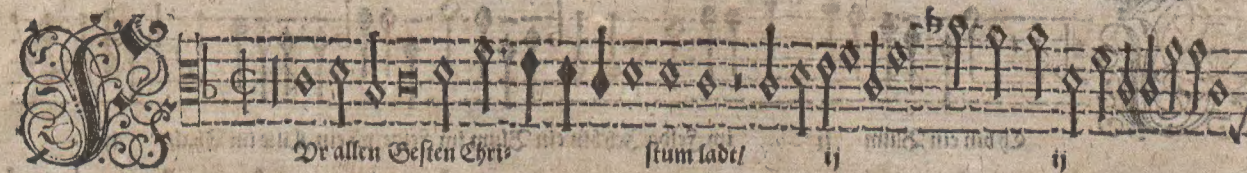 Vr allen Gesten Chri- stum ladt/ ij ij